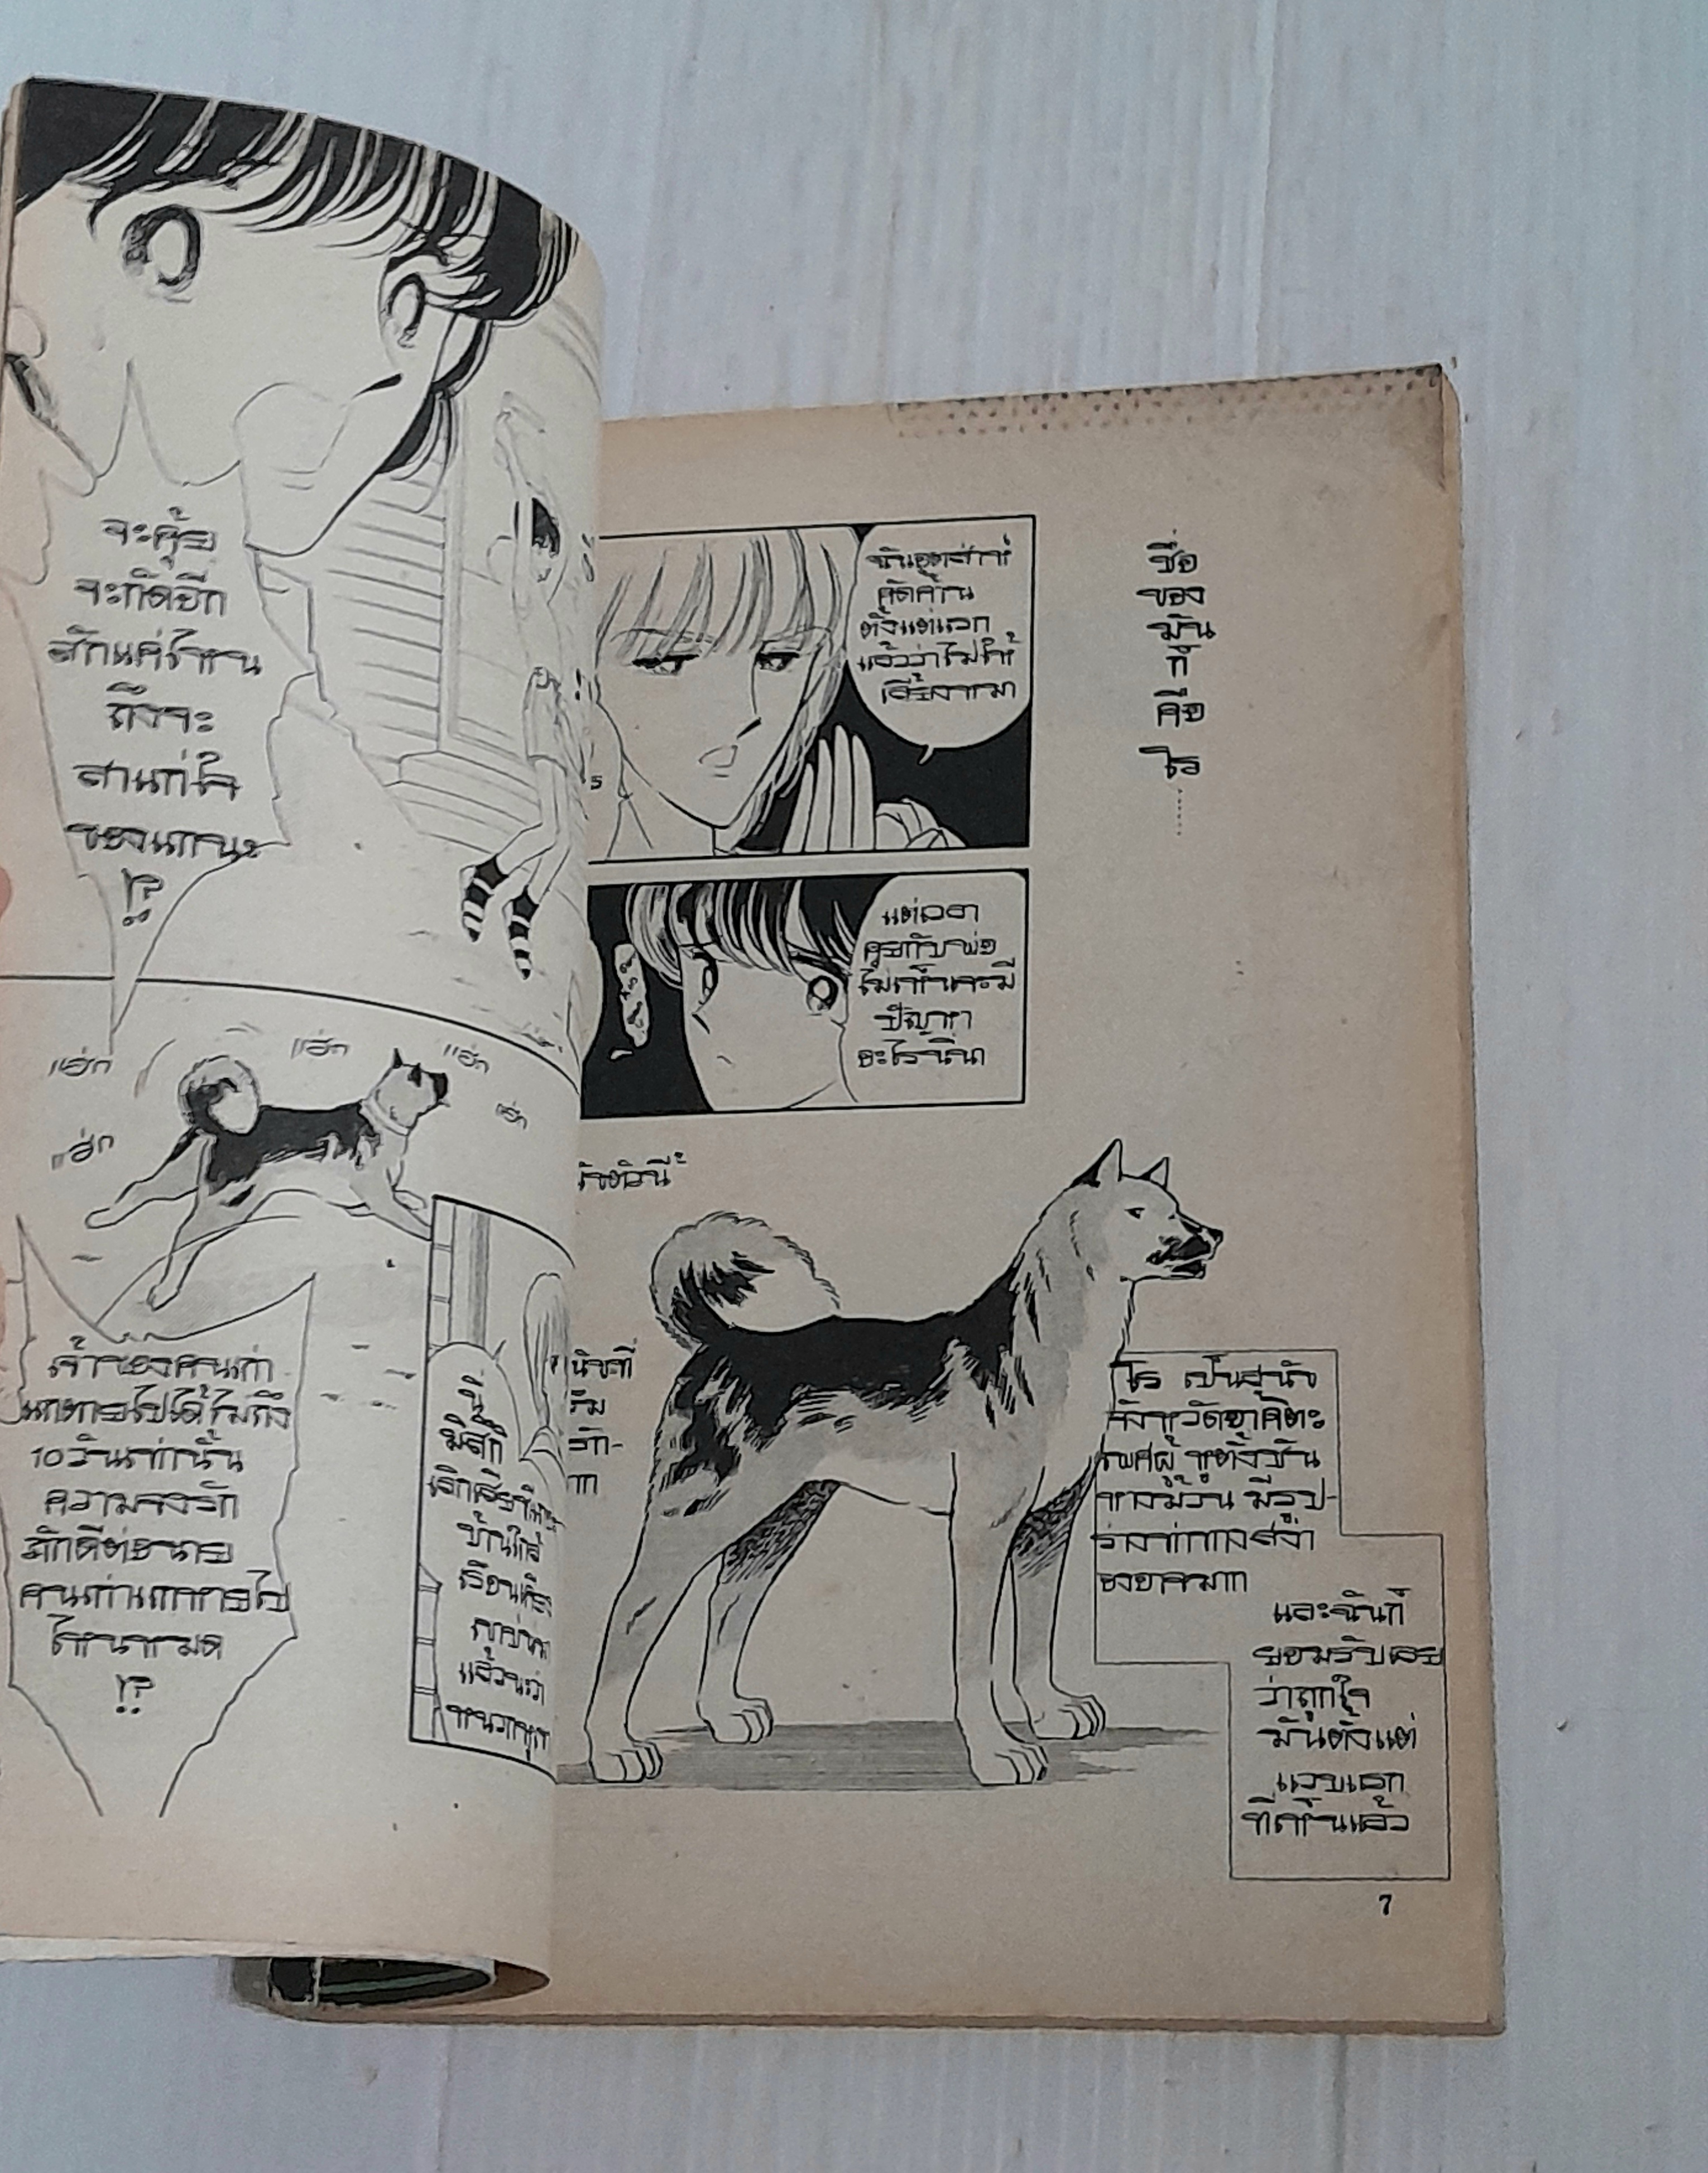 จะคุ้ย
จะกัดอีก
สักแค่ไหน
ถึงจะ
สาแก่ใจ
ของแกนะ
!?
แฮ่ก
แฮ่ก
แฮ่ก
แฮ่ก
แฮ่ก
เจ้าของคนเก่า
แกตายไปได้ไม่ถึง
10 วันเท่านั้น
ความจงรัก
ภักดีต่อนาย
คนเก่าแกหายไป
ไหนหมด
!?
นี่
มิสกี้
บ้านใกล้
แล้วนะว่า
ฉันอุตส่าห์
คัดค้าน
ตั้งแต่แรก
แล้วว่าไม่ให้
เลี้ยงหมา
5
แต่เวลา
คุยกับพ่อ
ไม่เห็นจะมี
ปัญหา
อะไรนี่นา
ชื่อ
ของ
มัน
ก็
คือ
โร
โร เป็นสุนัข
จังหวัดอาคิตะ
เพศผู้ หูตั้งชัน
หางม้วน มีรูป-
ร่างท่าทางสง่า
องอาจมาก
และฉันก็
ยอมรับเลย
ว่าถูกใจ
มันตั้งแต่
แวบแรก
ที่เห็นแล้ว
7